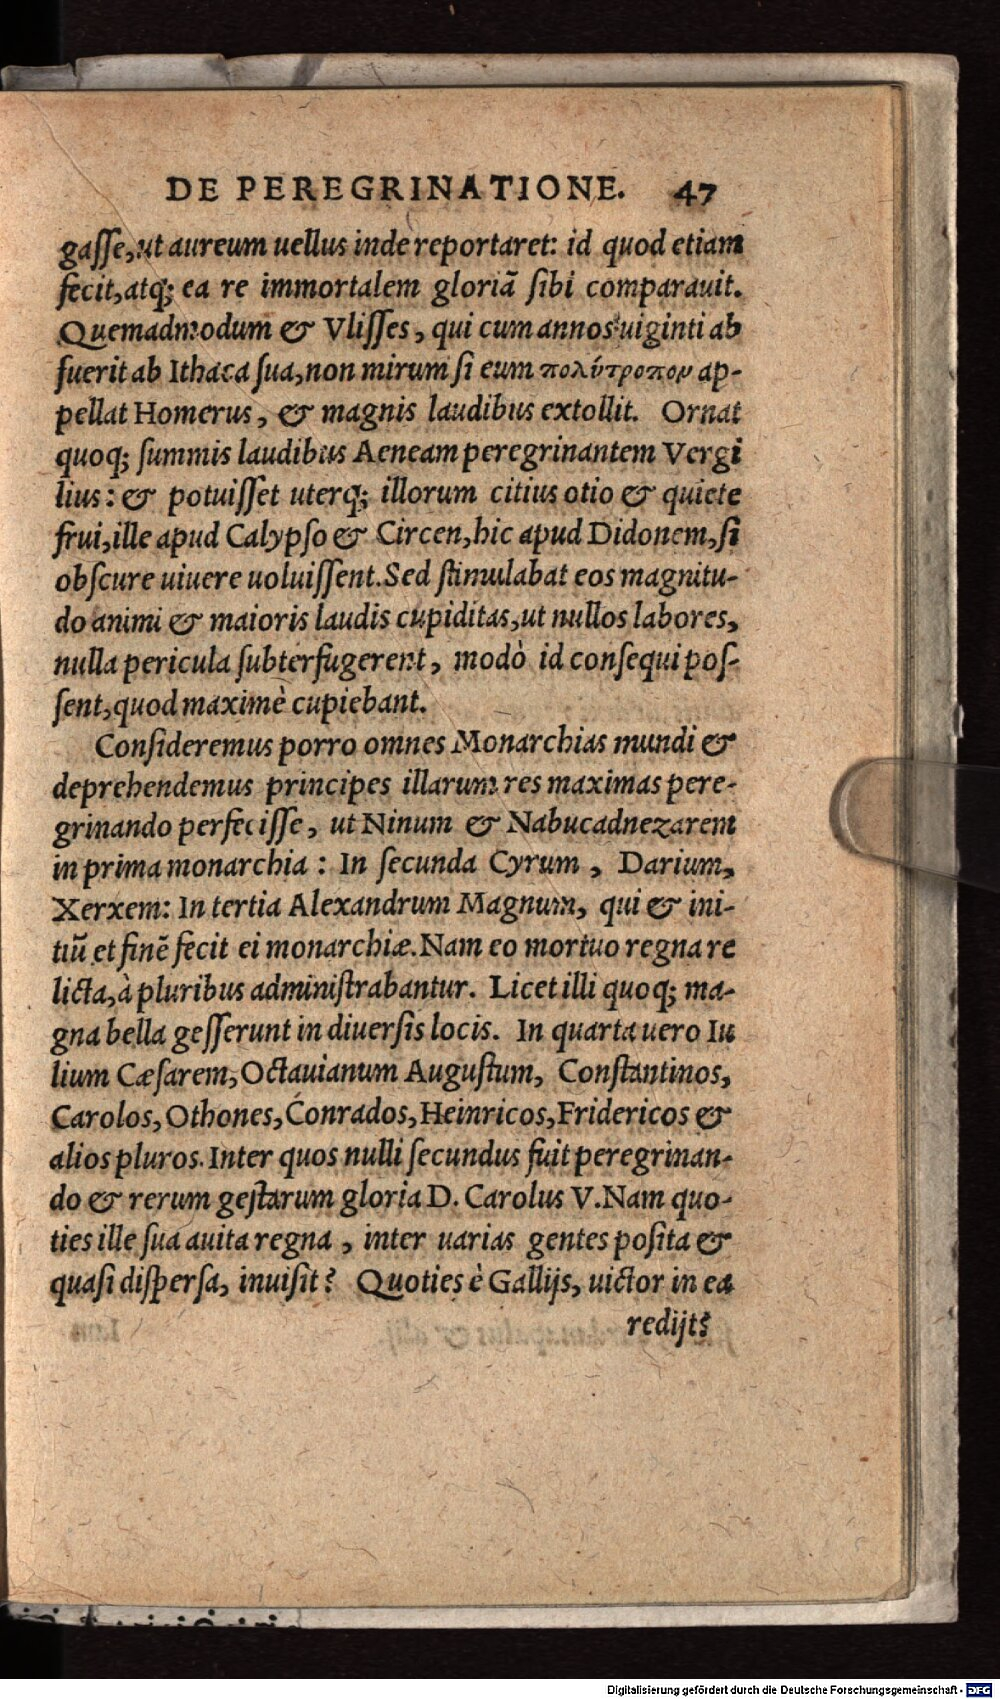 DE PEREGRINATIONE. 47
gaſſe, ut aureum uellus inde reportaret: id quod etiam
fecit, atq; ea re immortalem gloriã ſibi comparauit.
Quemadmodum & Vliſſes, qui cum annos uiginti ab
fuerit ab Ithaca ſua, non mirum ſi eum πολύτροπον ap-
pellat Homerus, & magnis laudibus extollit. Ornat
quoq; ſummis laudibus Aeneam peregrinantem Vergi
lius: & potuiſſet uterq; illorum citius otio & quiete
frui, ille apud Calypſo & Circen, hic apud Didonem, ſi
obſcure uiuere uoluiſſent. Sed ſtimulabat eos magnitu-
do animi & maioris laudis cupiditas, ut nullos labores,
nulla pericula ſubterfugerent, modò id conſequi poſ-
ſent, quod maximè cupiebant.
Conſideremus porro omnes Monarchias mundi &
deprehendemus principes illarum res maximas pere-
grinando perfeciſſe, ut Ninum & Nabucadnezarem
in prima monarchia: In ſecunda Cyrum, Darium,
Xerxem: In tertia Alexandrum Magnum, qui & ini-
tiũ et finẽ fecit ei monarchiæ. Nam eo mortuo regna re
licta, à pluribus adminiſtrabantur. Licet illi quoq; ma-
gna bella geſſerunt in diuerſis locis. In quarta uero Iu
lium Cæſarem, Octauianum Auguſtum, Conſtantinos,
Carolos, Othones, Conrados, Heinricos, Fridericos &
alios pluros. Inter quos nulli ſecundus fuit peregrinan-
do & rerum geſtarum gloria D. Carolus V. Nam quo-
ties ille ſua auita regna, inter uarias gentes poſita &
quaſi diſperſa, inuiſit? Quoties è Gallijs, uictor in ea
redijt?
Digitalisierung gefördert durch die Deutsche Forschungsgemeinschaft - DFG